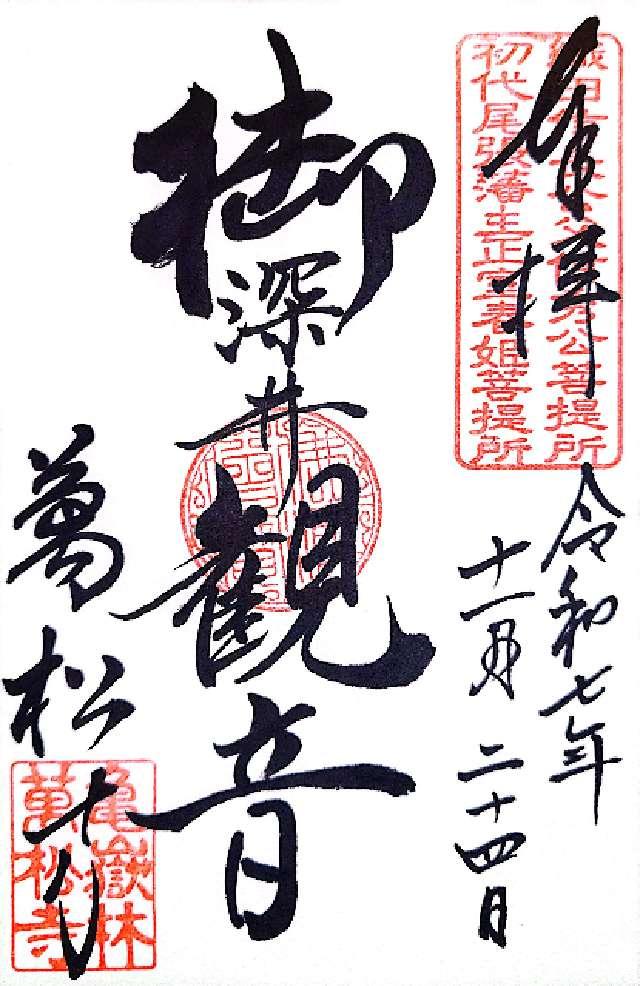 奉拝
初代尾張藩主正室春姫菩提所
令和七年
十一月二十四日
御深井観音
萬松寺
亀嶽林
萬松寺